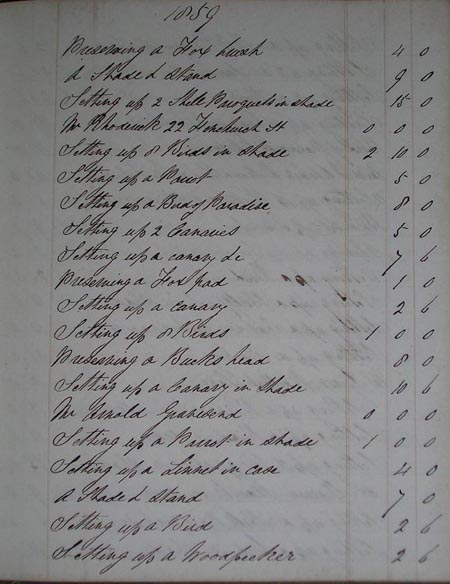 1859
Preserving a Fox brush 4 0
a Shade & Stand 9 0
Setting up 2 Shell Paroquets in shade 15 0
Mr Rhoderick 22 Fenchurch St 0 0 0
Setting up 8 Birds in shade 2 10 0
Setting up a Parrot 5 0
Setting up a Bird of Paradise 8 0
Setting up 2 Canaries 5 0
Setting up a canary &c 7 6
Preserving a Fox pad 1 0
Setting up a Canary 2 6
Setting up 8 Birds 1 0 0
Preserving a Bucks head 8 0
Setting up a Canary in Shade 10 6
Mr Arnold Gravesend 0 0 0
Setting up a Parrot in shade 1 0 0
Setting up a Linnet in case 4 0
a Shade & Stand 7 0
Setting up a Bird 2 6
Setting up a Woodpecker 2 6